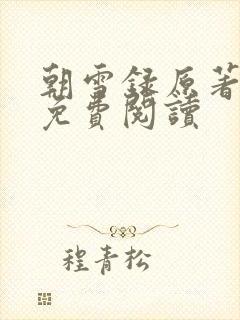 朝雪録原著
免費閱讀
程青松